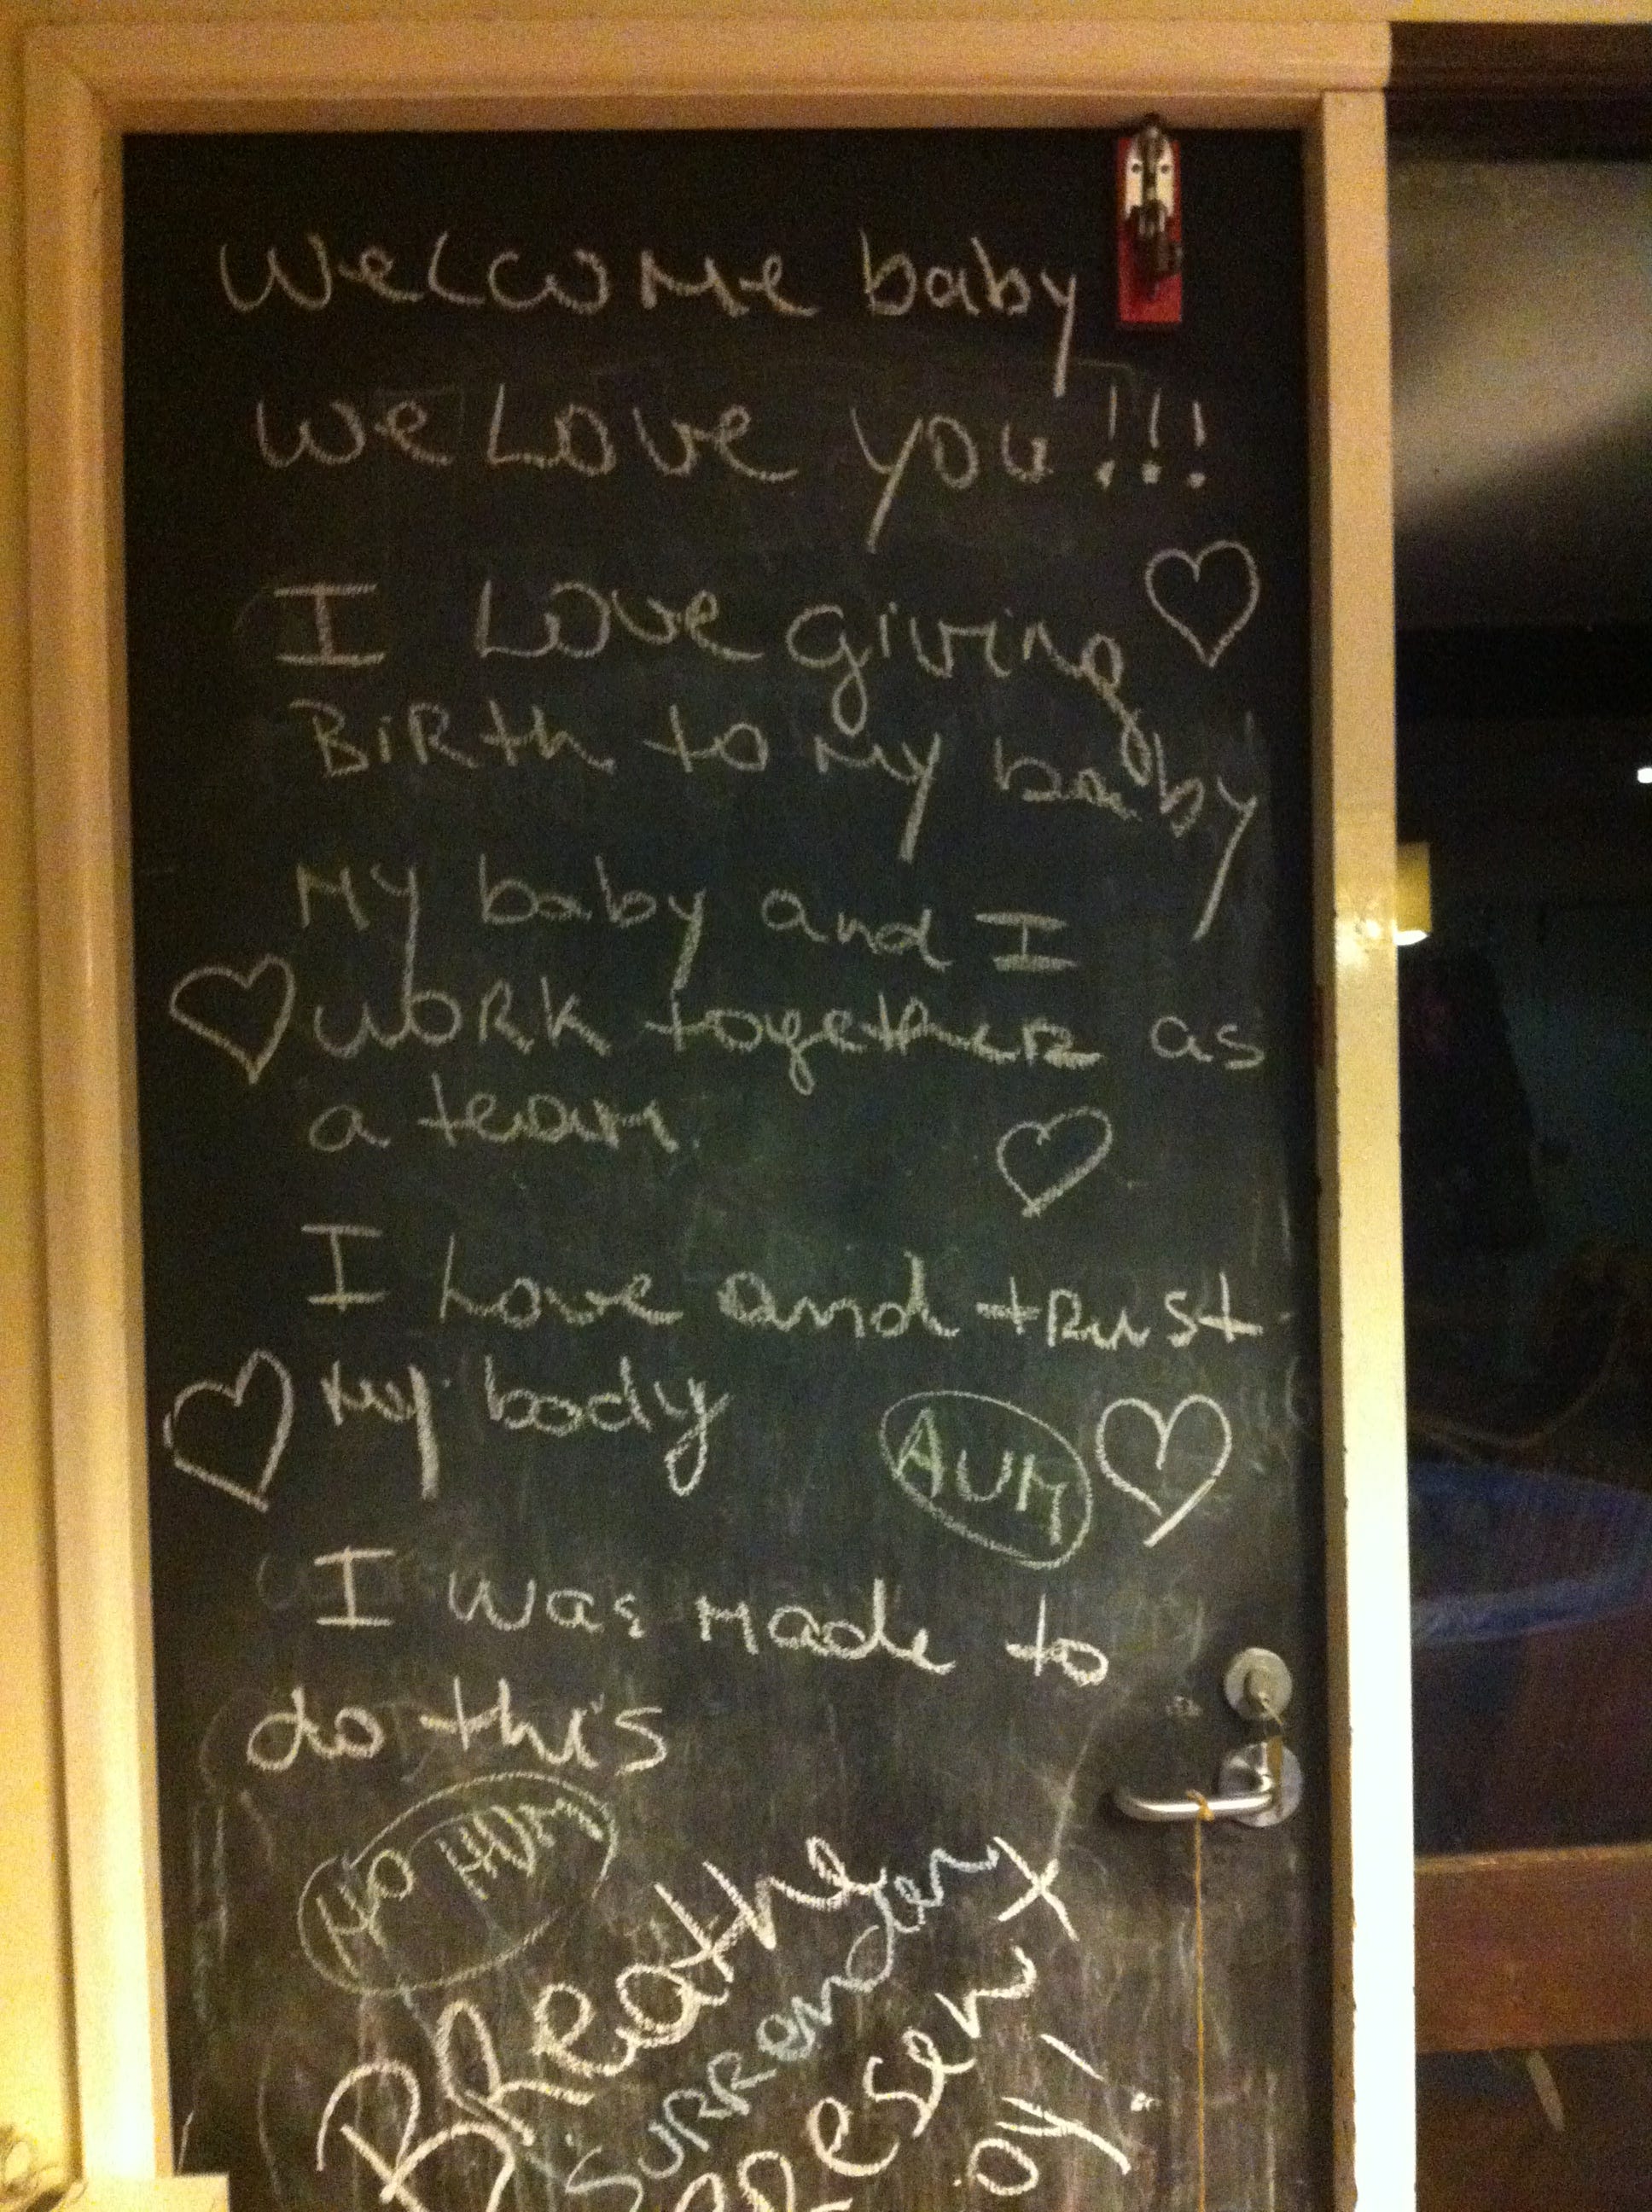 Welcome baby
We Love you!!!
I Love giving
BiRth to My baby
My baby and I
woRk togetheR as
a team
I Love and tRust
My body
AUM
I was Made to
do this
HO HUM
BReathe
SURRender